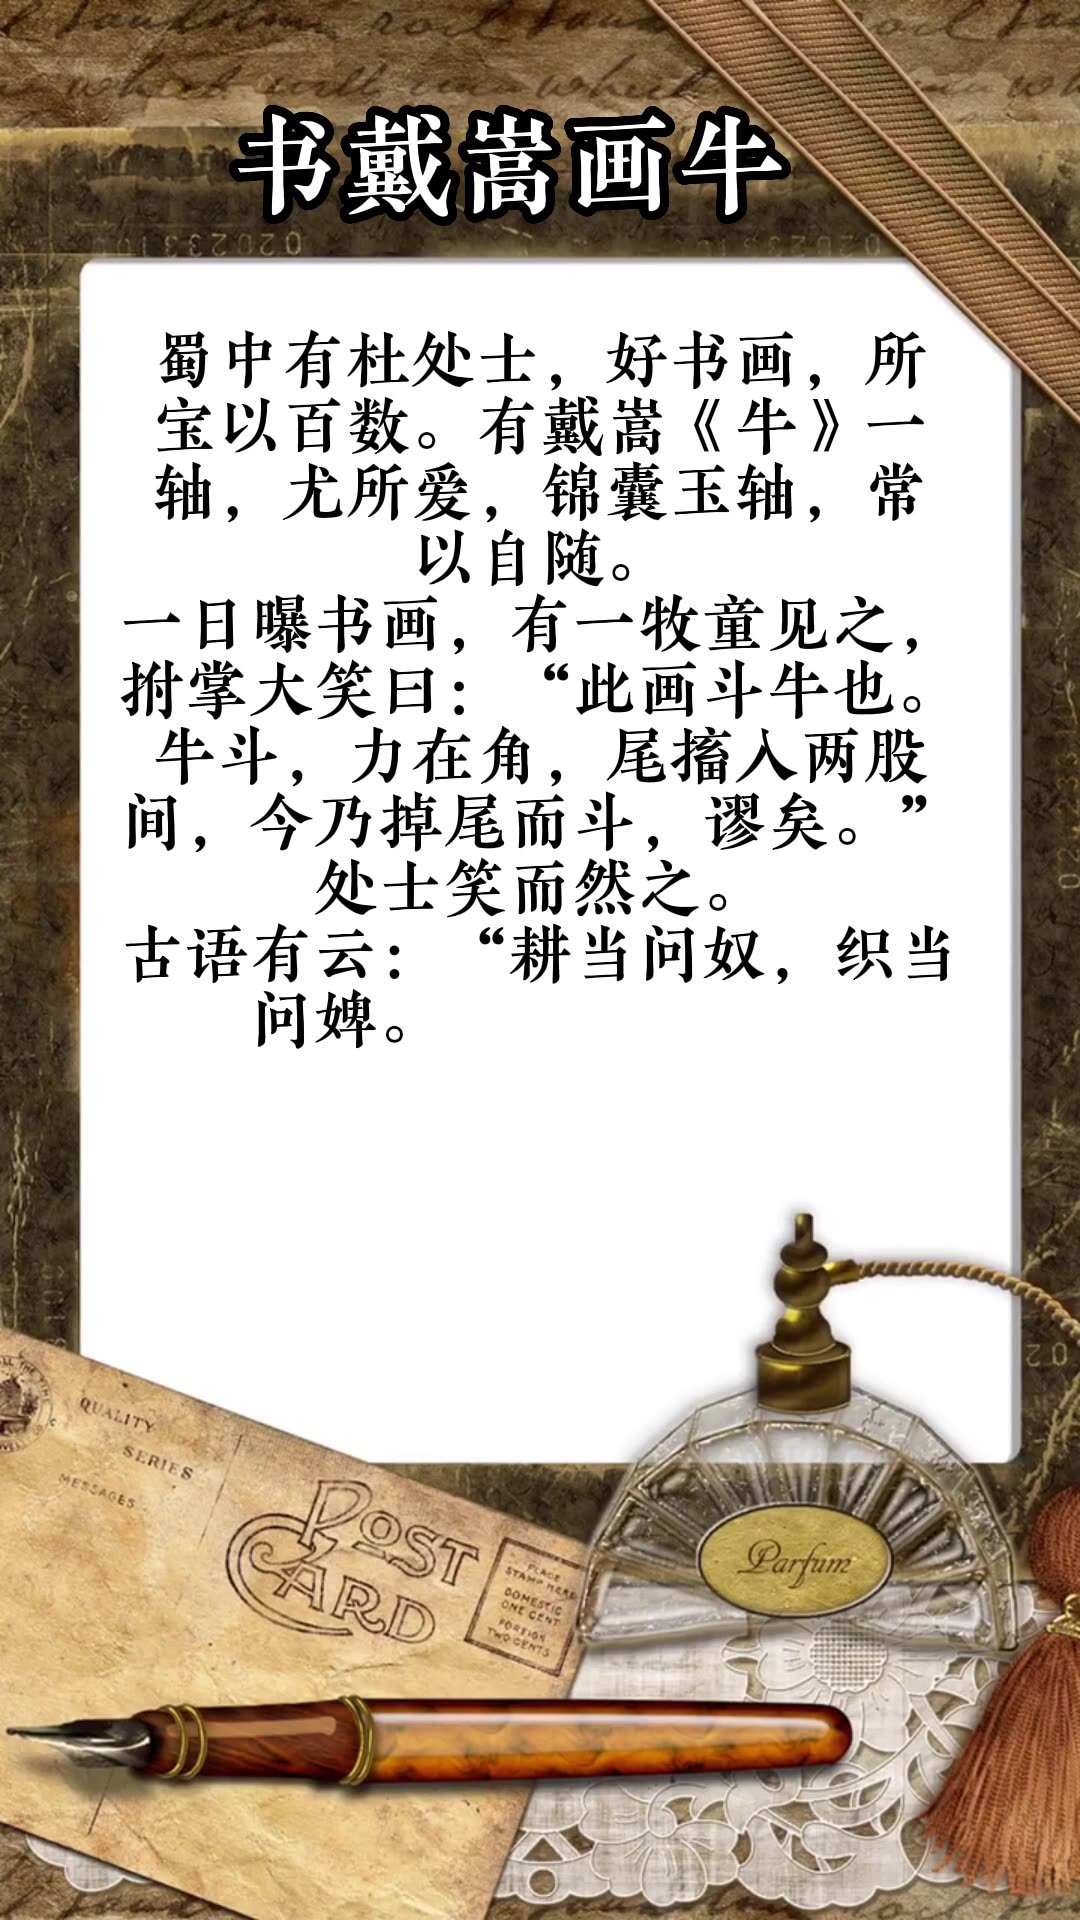 书戴嵩画牛
蜀中有杜处士，好书画，所
宝以百数。有戴嵩《牛》一
轴，尤所爱，锦囊玉轴，常
以自随。
一日曝书画，有一牧童见之，
拊掌大笑曰：“此画斗牛也。
牛斗，力在角，尾搐入两股
间，今乃掉尾而斗，谬矣。”
处士笑而然之。
古语有云：“耕当问奴，织当
问婢。
QUALITY
SERIES
MESSAGES
POST
CARD
PLACE
STAMP HERE
DOMESTIC
ONE CENT
FOREIGN
TWO CENTS
Parfum